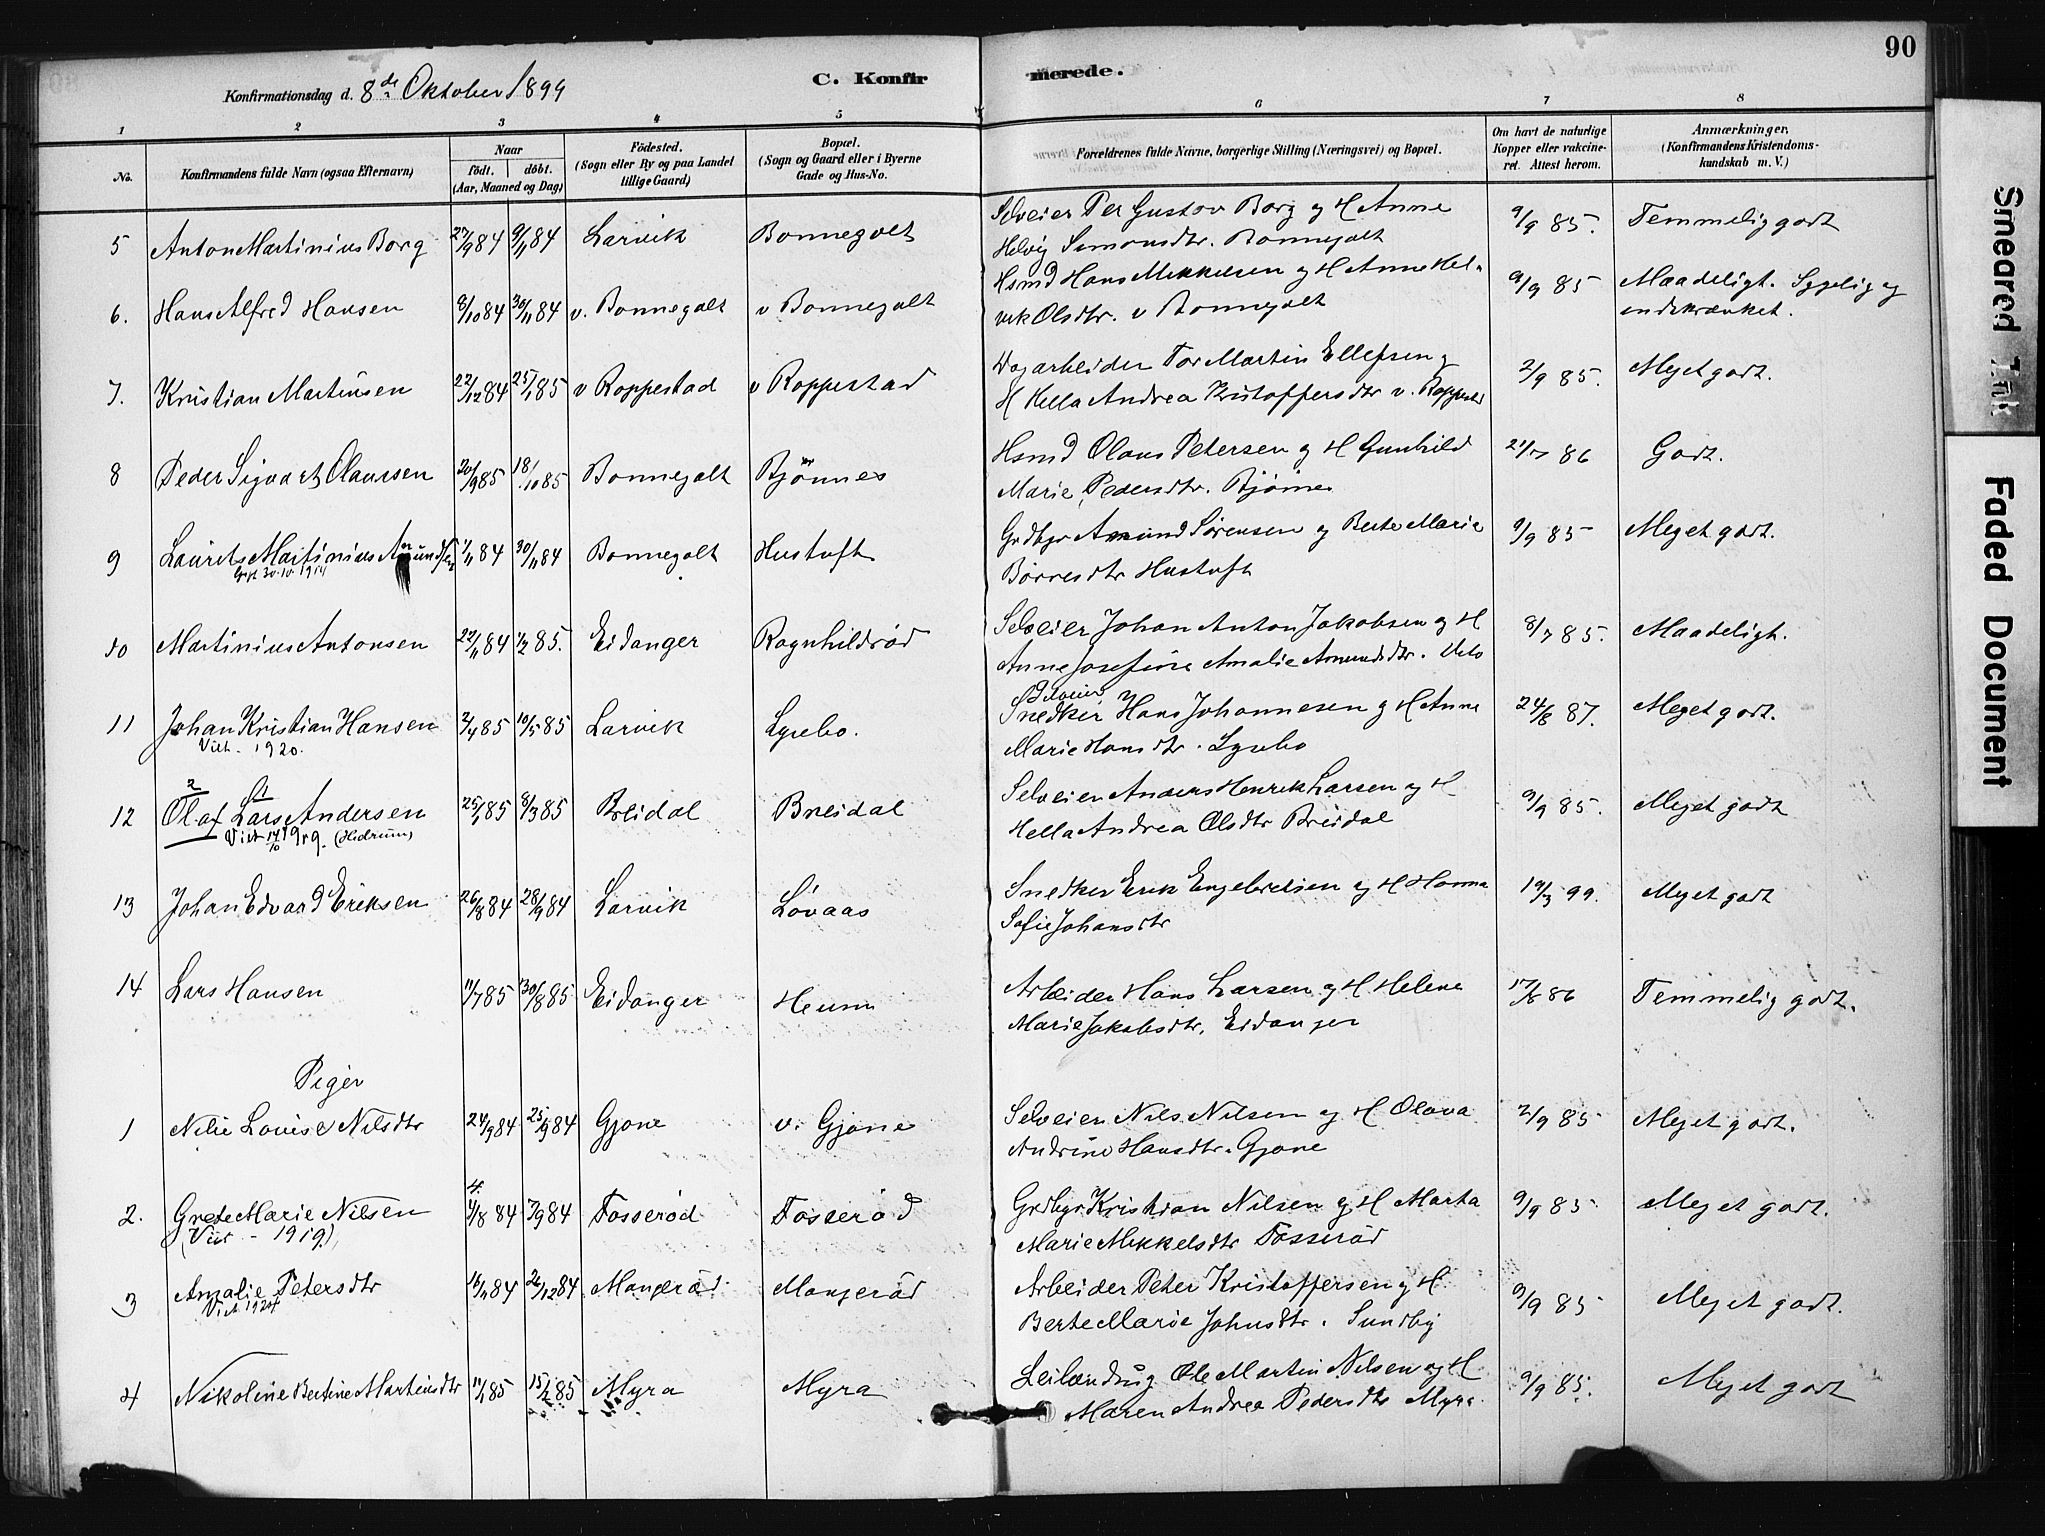 90
C. Konfirmerede.
Konfirmationsdag d. 8de Oktober 1899
1 2 3 4 5 6 7 8
No. Konfirmandens fulde Navn (ogsaa Efternavn) Naar födt. döbt. (Aar, Maaned og Dag) Födested. (Sogn eller By og paa Landet tillige Gaard) Bopæl. (Sogn og Gaard eller i Byerne Gade og Hus-No.) Forældrenes fulde Navne, borgerlige Stilling (Næringsvei) og Bopæl. Om havt de naturlige Kopper eller vaccineret. Attest herom. Anmærkninger. (Konfirmandens Kristendomskundskab m. V.)
5 Anton Martinius Borg 27/9 84 9/11 84 Larvik Bonnegolt Selveier Per Gustav Borg og H Anne 9/9 85. Temmelig godt
Helvig Simonsdtr. Bonnegolt
6. Hans Alfred Hansen 8/10 84 30/11 84 v. Bonnegolt v Bonnegolt Hsmd Hans Mikkelsen og H Anne Hel- 9/9 85 Maadeligt. Sygelig og
vik Olsdtr. v Bonnegolt
7. Kristian Martinsen 22/12 84 25/1 85 v Roppestad v Roppestad Dagarbeider Tor Martin Ellefsen og 2/9 85. Meget godt.
H Hella Andrea Kristoffersdtr v. Roppestd
8 Peder Sigvart Olaussen 20/9 85 18/10 85 Bonnegolt Bjønnes Hsmd Olaus Petersen og H Gunhild 21/7 86 Godt.
Marie Pedersdtr. Bjønnes
9 Laurits Martinius Amundsen 1/11 84 30/11 84 Bonnegolt Hustuft Grdbgr Amund Sørensen og Berte Marie 9/9 85 Meget godt.
Gift 30.10.1914 Börresdtr Hustuft
10 Martinius Antonsen 22/11 84 1/2 85. Eidanger Ragnhildrød Selveier Johan Anton Jakobsen og H 8/7 85. Maadeligt.
Anne Josefine Amalie Amundsdtr.
Selveier
11 Johan Kristian Hansen 2/4 85 10/5 85 Larvik Lysebo. Snedker Hans Johannesen og H Anne 24/6 87. Meget godt.
Viet - 1920. Marie Hansdtr. Lysebo
2 1
12 Olaf Lars Andersen 25/1 85 8/3 85 Breidal Breidal Selveier Anders Henrik Larsen og H 9/9 85. Meget godt
Viet 14/10 1919. (Hedrum) Hella Andrea Olsdtr Breidal
13 Johan Edvard Eriksen 26/8 84 28/9 84 Larvik Lövaas Snedker Erik Engebretsen og H Hanna 19/3 99. Meget godt
Sofie Johansdtr
14 Lars Hansen 11/7 85 30/8 85 Eidanger Heum Arbeider Hans Larsen og H Helene 17/6 86 Temmelig godt.
Marie Jakobsdtr. Eidanger
Piger
1 Nilie Lovise Nilsdtr 24/9 84 25/9 84 Gjone v. Gjone Selveier Nils Nilsen og H Olava 2/9 85 Meget godt.
Andrine Hansdtr. Gjone
4.
2. Grete Marie Nilsen 11/8 84 7/9 84 Fosserød Fosserød Grdbgr Kristian Nilsen og H Marta 9/9 85 Meget godt.
(Viet - 1919.) Marie Mikkelsdtr Fosserød
3 Amalie Petersdtr 16/11 84 26/12 84 Mangerød. Mangerød Arbeider Peter Kristoffersen og H 9/9 85 Meget godt.
Viet 1924 Berte Marie Johnsdtr. Sundby
4 Nikoline Bertine Martinsdtr 11/1 85 15/2 85 Myra Myra Leilending Ole Martin Nilsen og H 9/9 85. Meget godt
Maren Andrea Pedersdtr Myra.
Smeared Ink
Faded Document